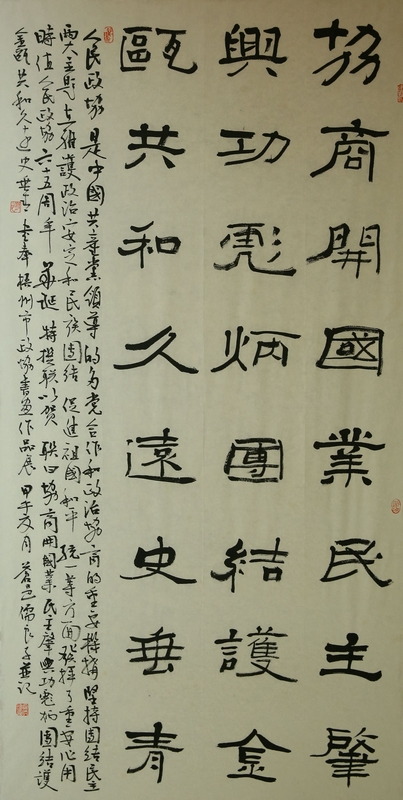 協商開國業民主肇
興功彪炳團結護金
甌共和久遠史垂青
人民政協是中國共產黨領導的多党合作和政治協商的重要機構堅持團結民主
兩大主題在維護政治安定和民族團結促進祖國和平統一等方面發揮了重要作用
時值人民政協六十五周年華誕特撰聯以賀聯曰協商開國業民主肇興功彪炳團結護
金甌共和久遠史垂青書奉梧州市政協書畫作品展甲午夏月蒼邑儒